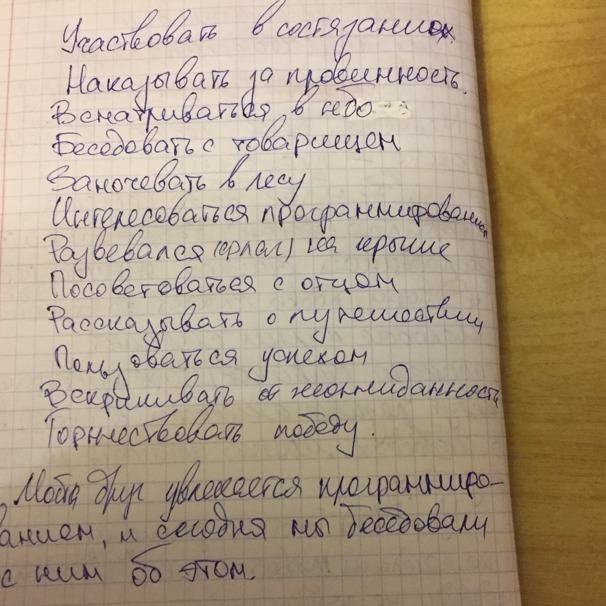 Участвовать в состязаниях.
Наказывать за провинность.
Всматриваться в небо
Беседовать с товарищем
Заночевать в лесу
Интересоваться программированием
Развевался (флаг) на крыше
Посоветоваться с отцом
Рассказывать о путешествии
Пользоваться успехом
Вскрикивать от неожиданности
Торжествовать победу.
Мой друг увлекается программиро-
ванием, и сегодня мы беседовали
с ним об этом.